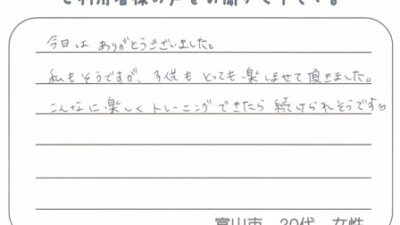 今日は ありがとうございました。
私もそうですが、子供も とっても 楽しませて頂きました。
こんなに 楽しく トレーニング できたら 続けられそうです♡
富山市 30代 女性